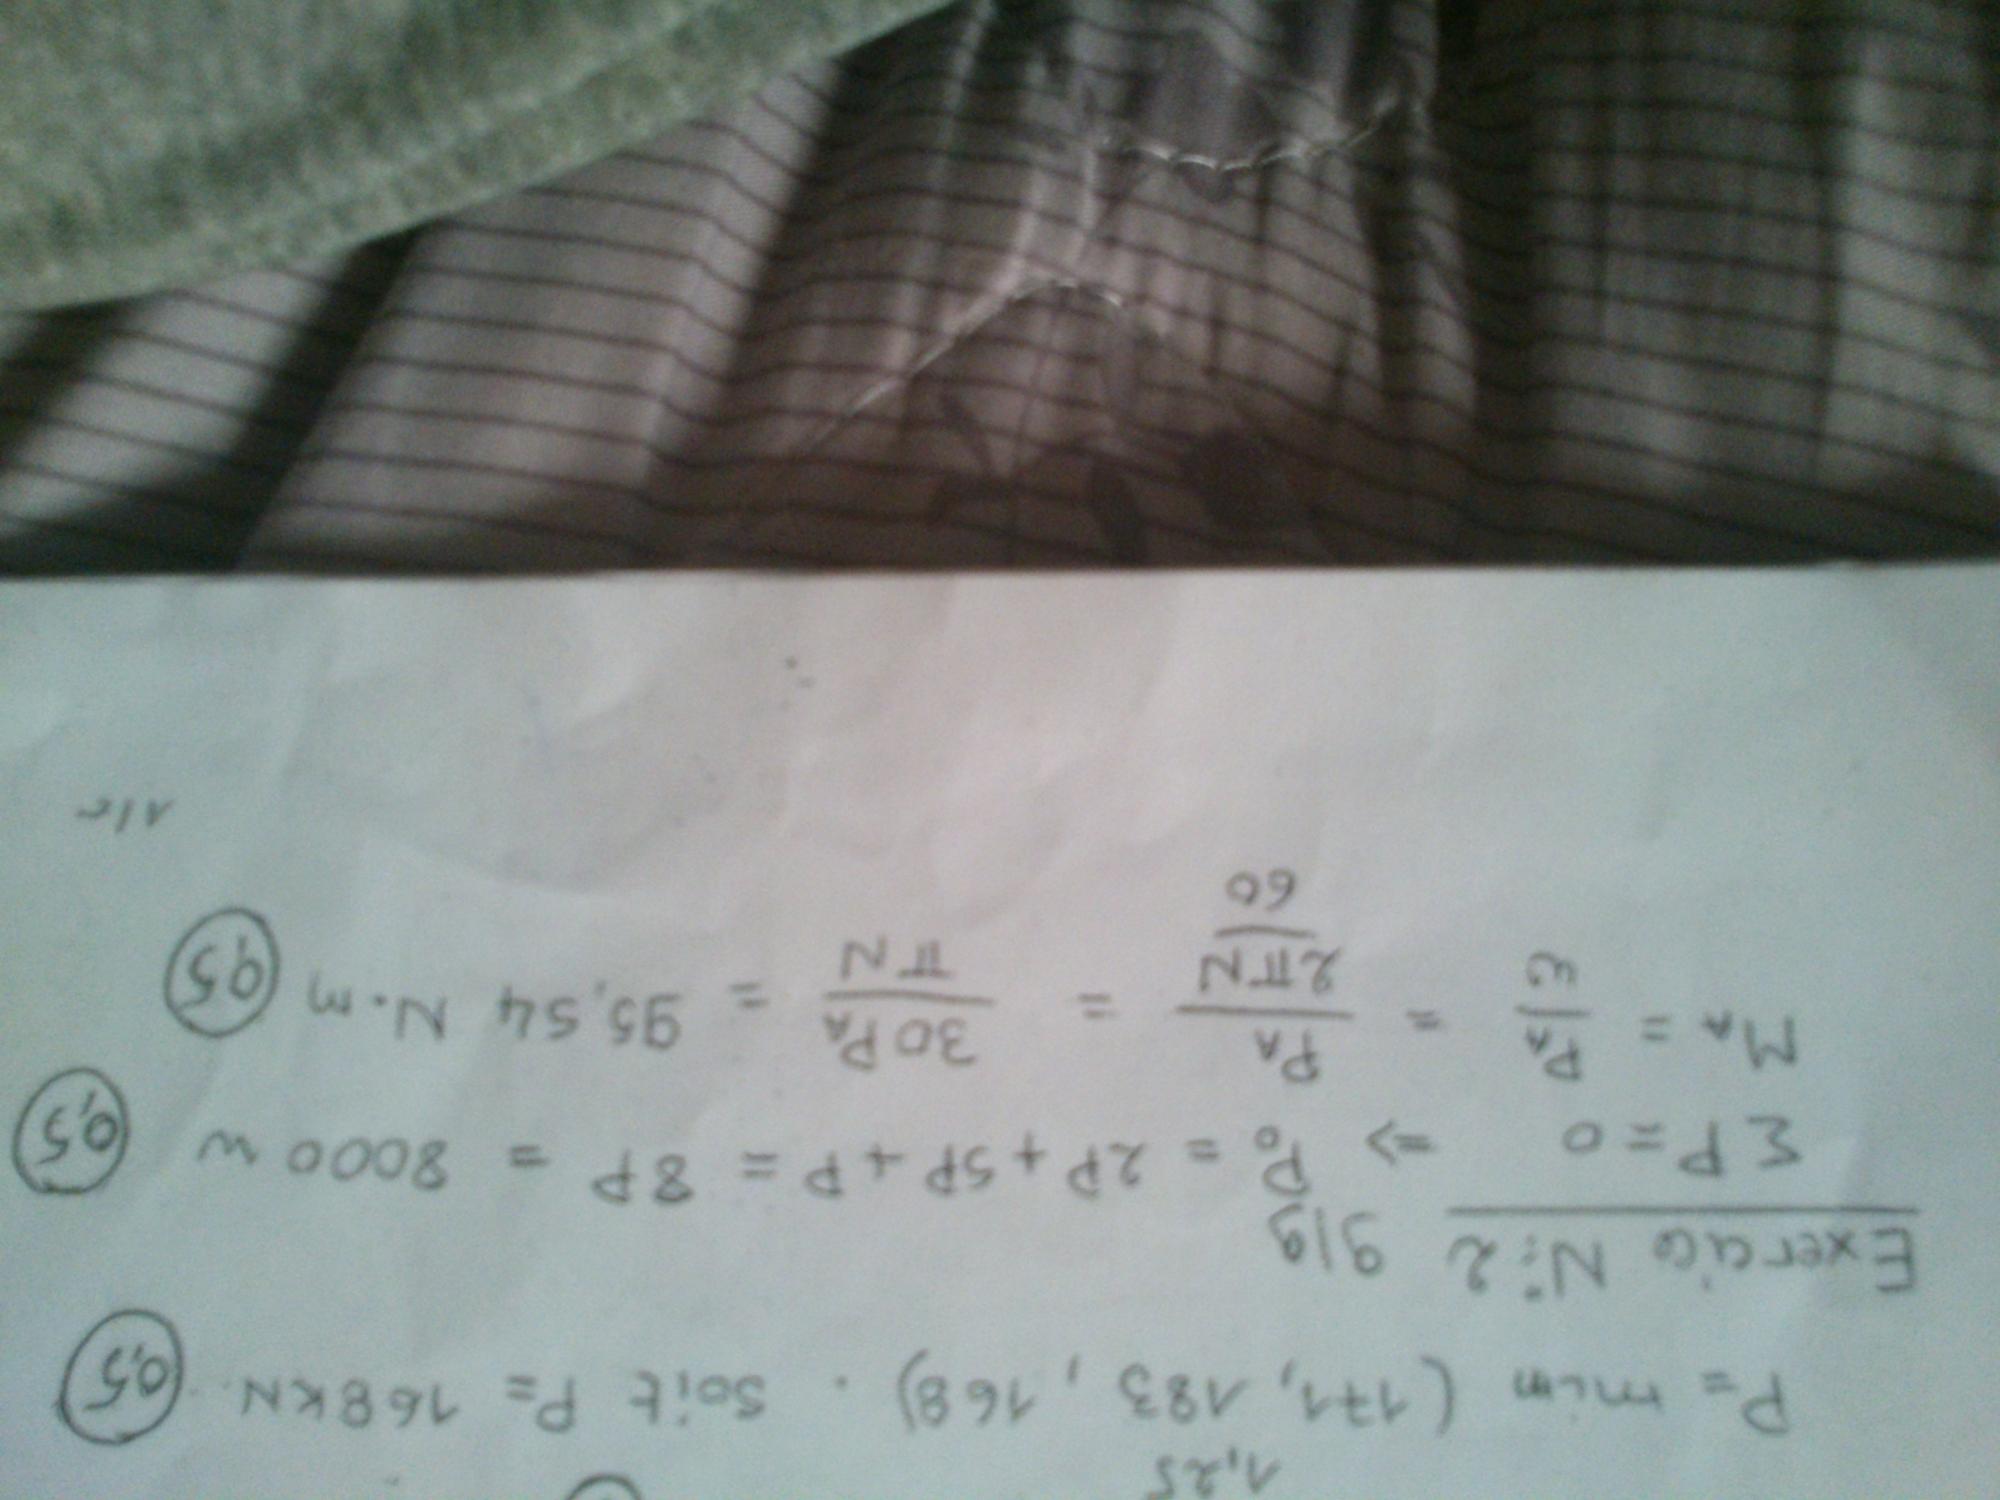 1,25
P = min (171, 183, 168) . Soit P = 168KN. 0,5
Exercice N°:2 9/9
ΣP=0 => P₀ = 2P + 5P + P = 8P = 8000 W 0,5
M_A = P_A/ω = P_A/(2πN/60) = 30P_A/(πN) = 95,54 N.m 0,5